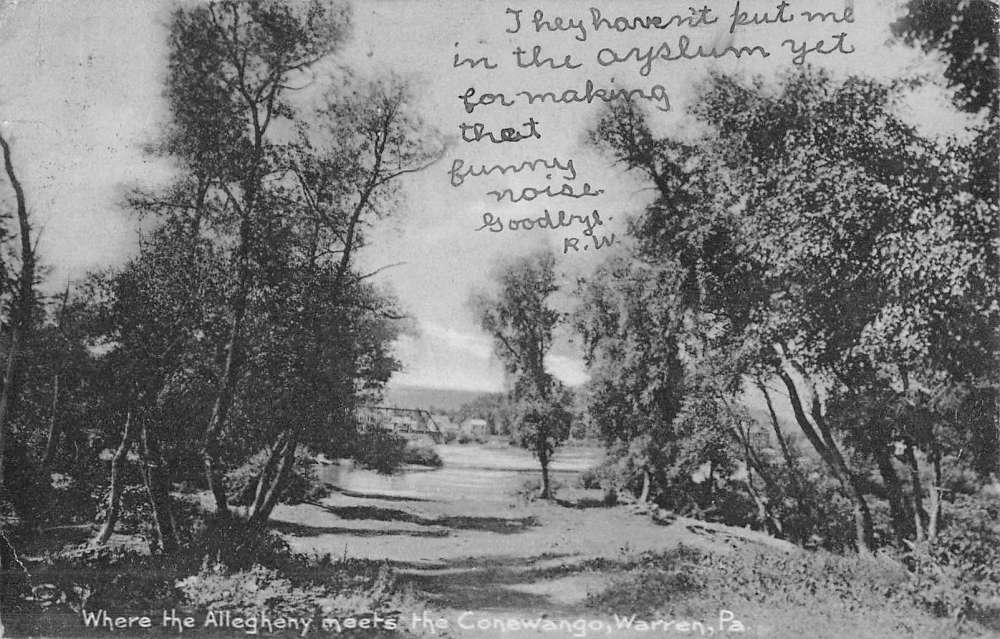 They haven't put me
in the ayslum yet
for making
that
funny
noise.
Goodbye.
R.W.
Where the Allegheny meets the Conewango, Warren, Pa.